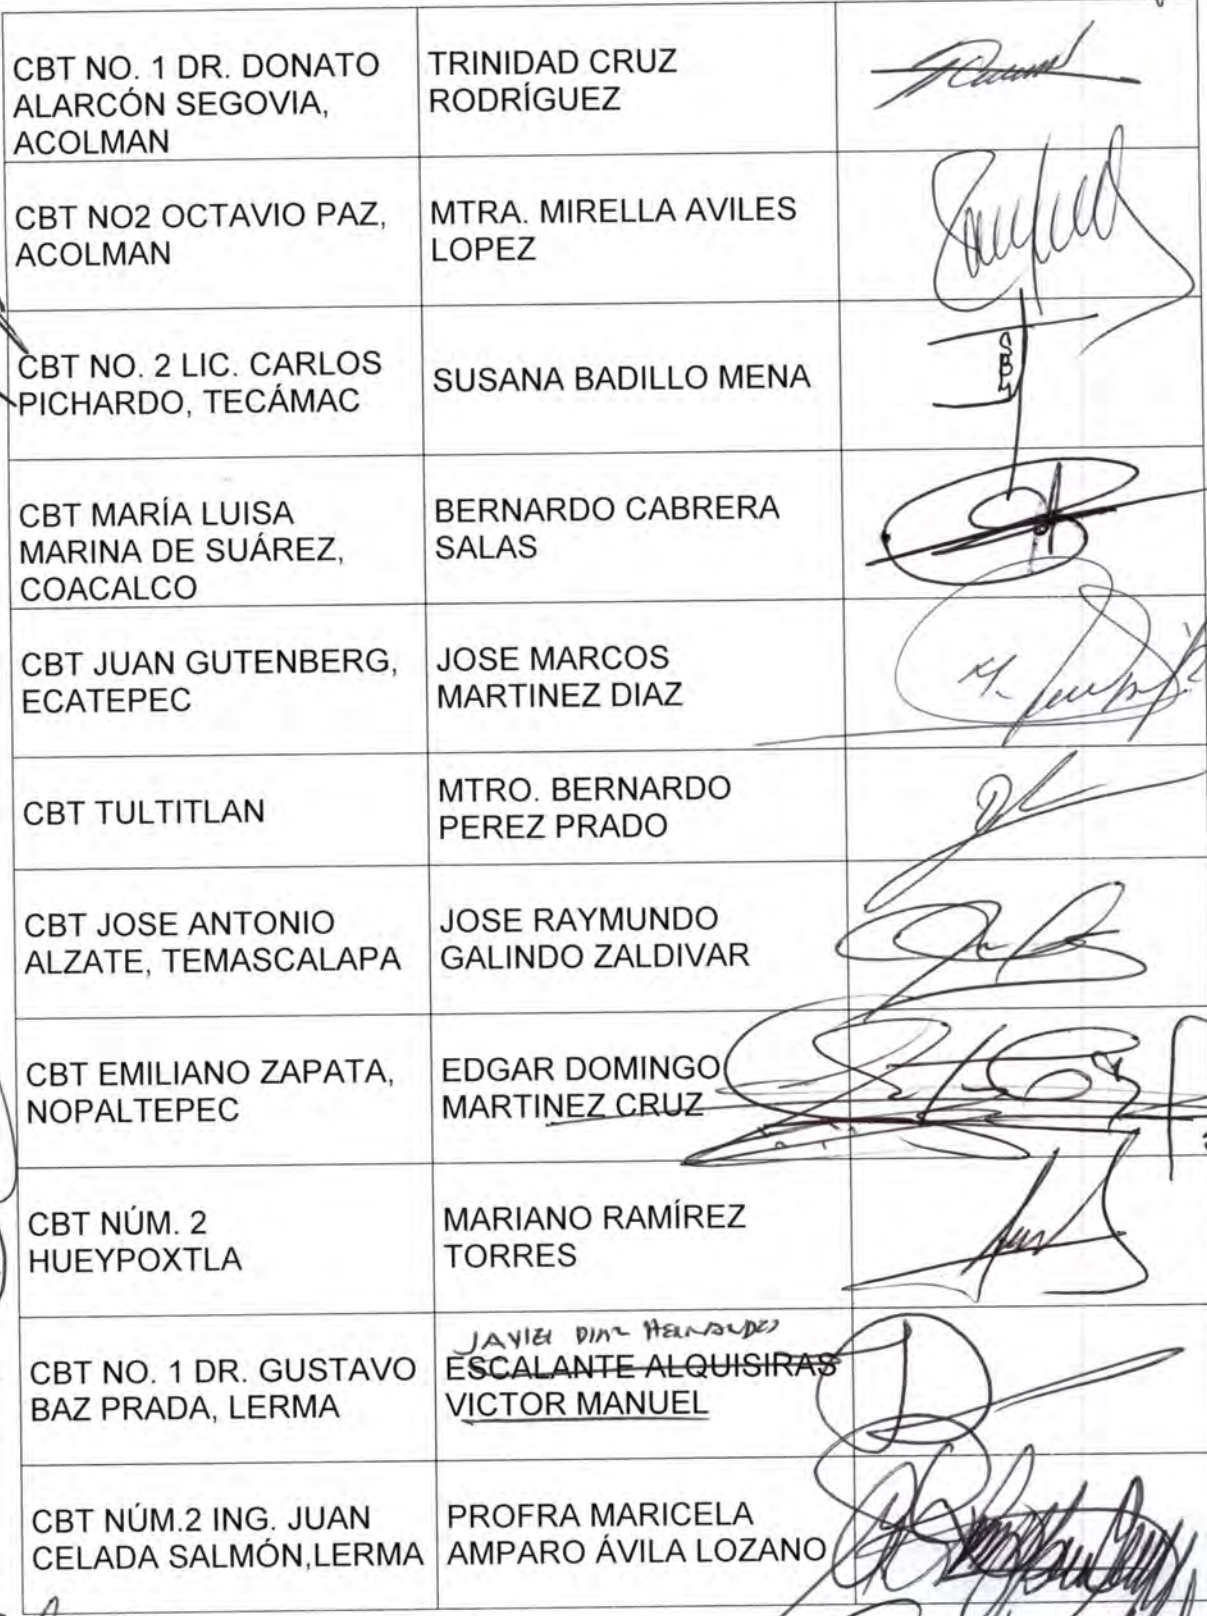 CBT NO. 1 DR. DONATO
ALARCÓN SEGOVIA,
ACOLMAN
TRINIDAD CRUZ
RODRÍGUEZ
CBT NO2 OCTAVIO PAZ,
ACOLMAN
MTRA. MIRELLA AVILES
LOPEZ
CBT NO. 2 LIC. CARLOS
PICHARDO, TECÁMAC
SUSANA BADILLO MENA
CBT MARÍA LUISA
MARINA DE SUÁREZ,
COACALCO
BERNARDO CABRERA
SALAS
CBT JUAN GUTENBERG,
ECATEPEC
JOSE MARCOS
MARTINEZ DIAZ
CBT TULTITLAN
MTRO. BERNARDO
PEREZ PRADO
CBT JOSE ANTONIO
ALZATE, TEMASCALAPA
JOSE RAYMUNDO
GALINDO ZALDIVAR
CBT EMILIANO ZAPATA,
NOPALTEPEC
EDGAR DOMINGO
MARTINEZ CRUZ
CBT NÚM. 2
HUEYPOXTLA
MARIANO RAMÍREZ
TORRES
CBT NO. 1 DR. GUSTAVO
BAZ PRADA, LERMA
JAVIER DIAZ HERNANDEZ
ESCALANTE ALQUISIRAS
VICTOR MANUEL
CBT NÚM.2 ING. JUAN
CELADA SALMÓN,LERMA
PROFRA MARICELA
AMPARO ÁVILA LOZANO